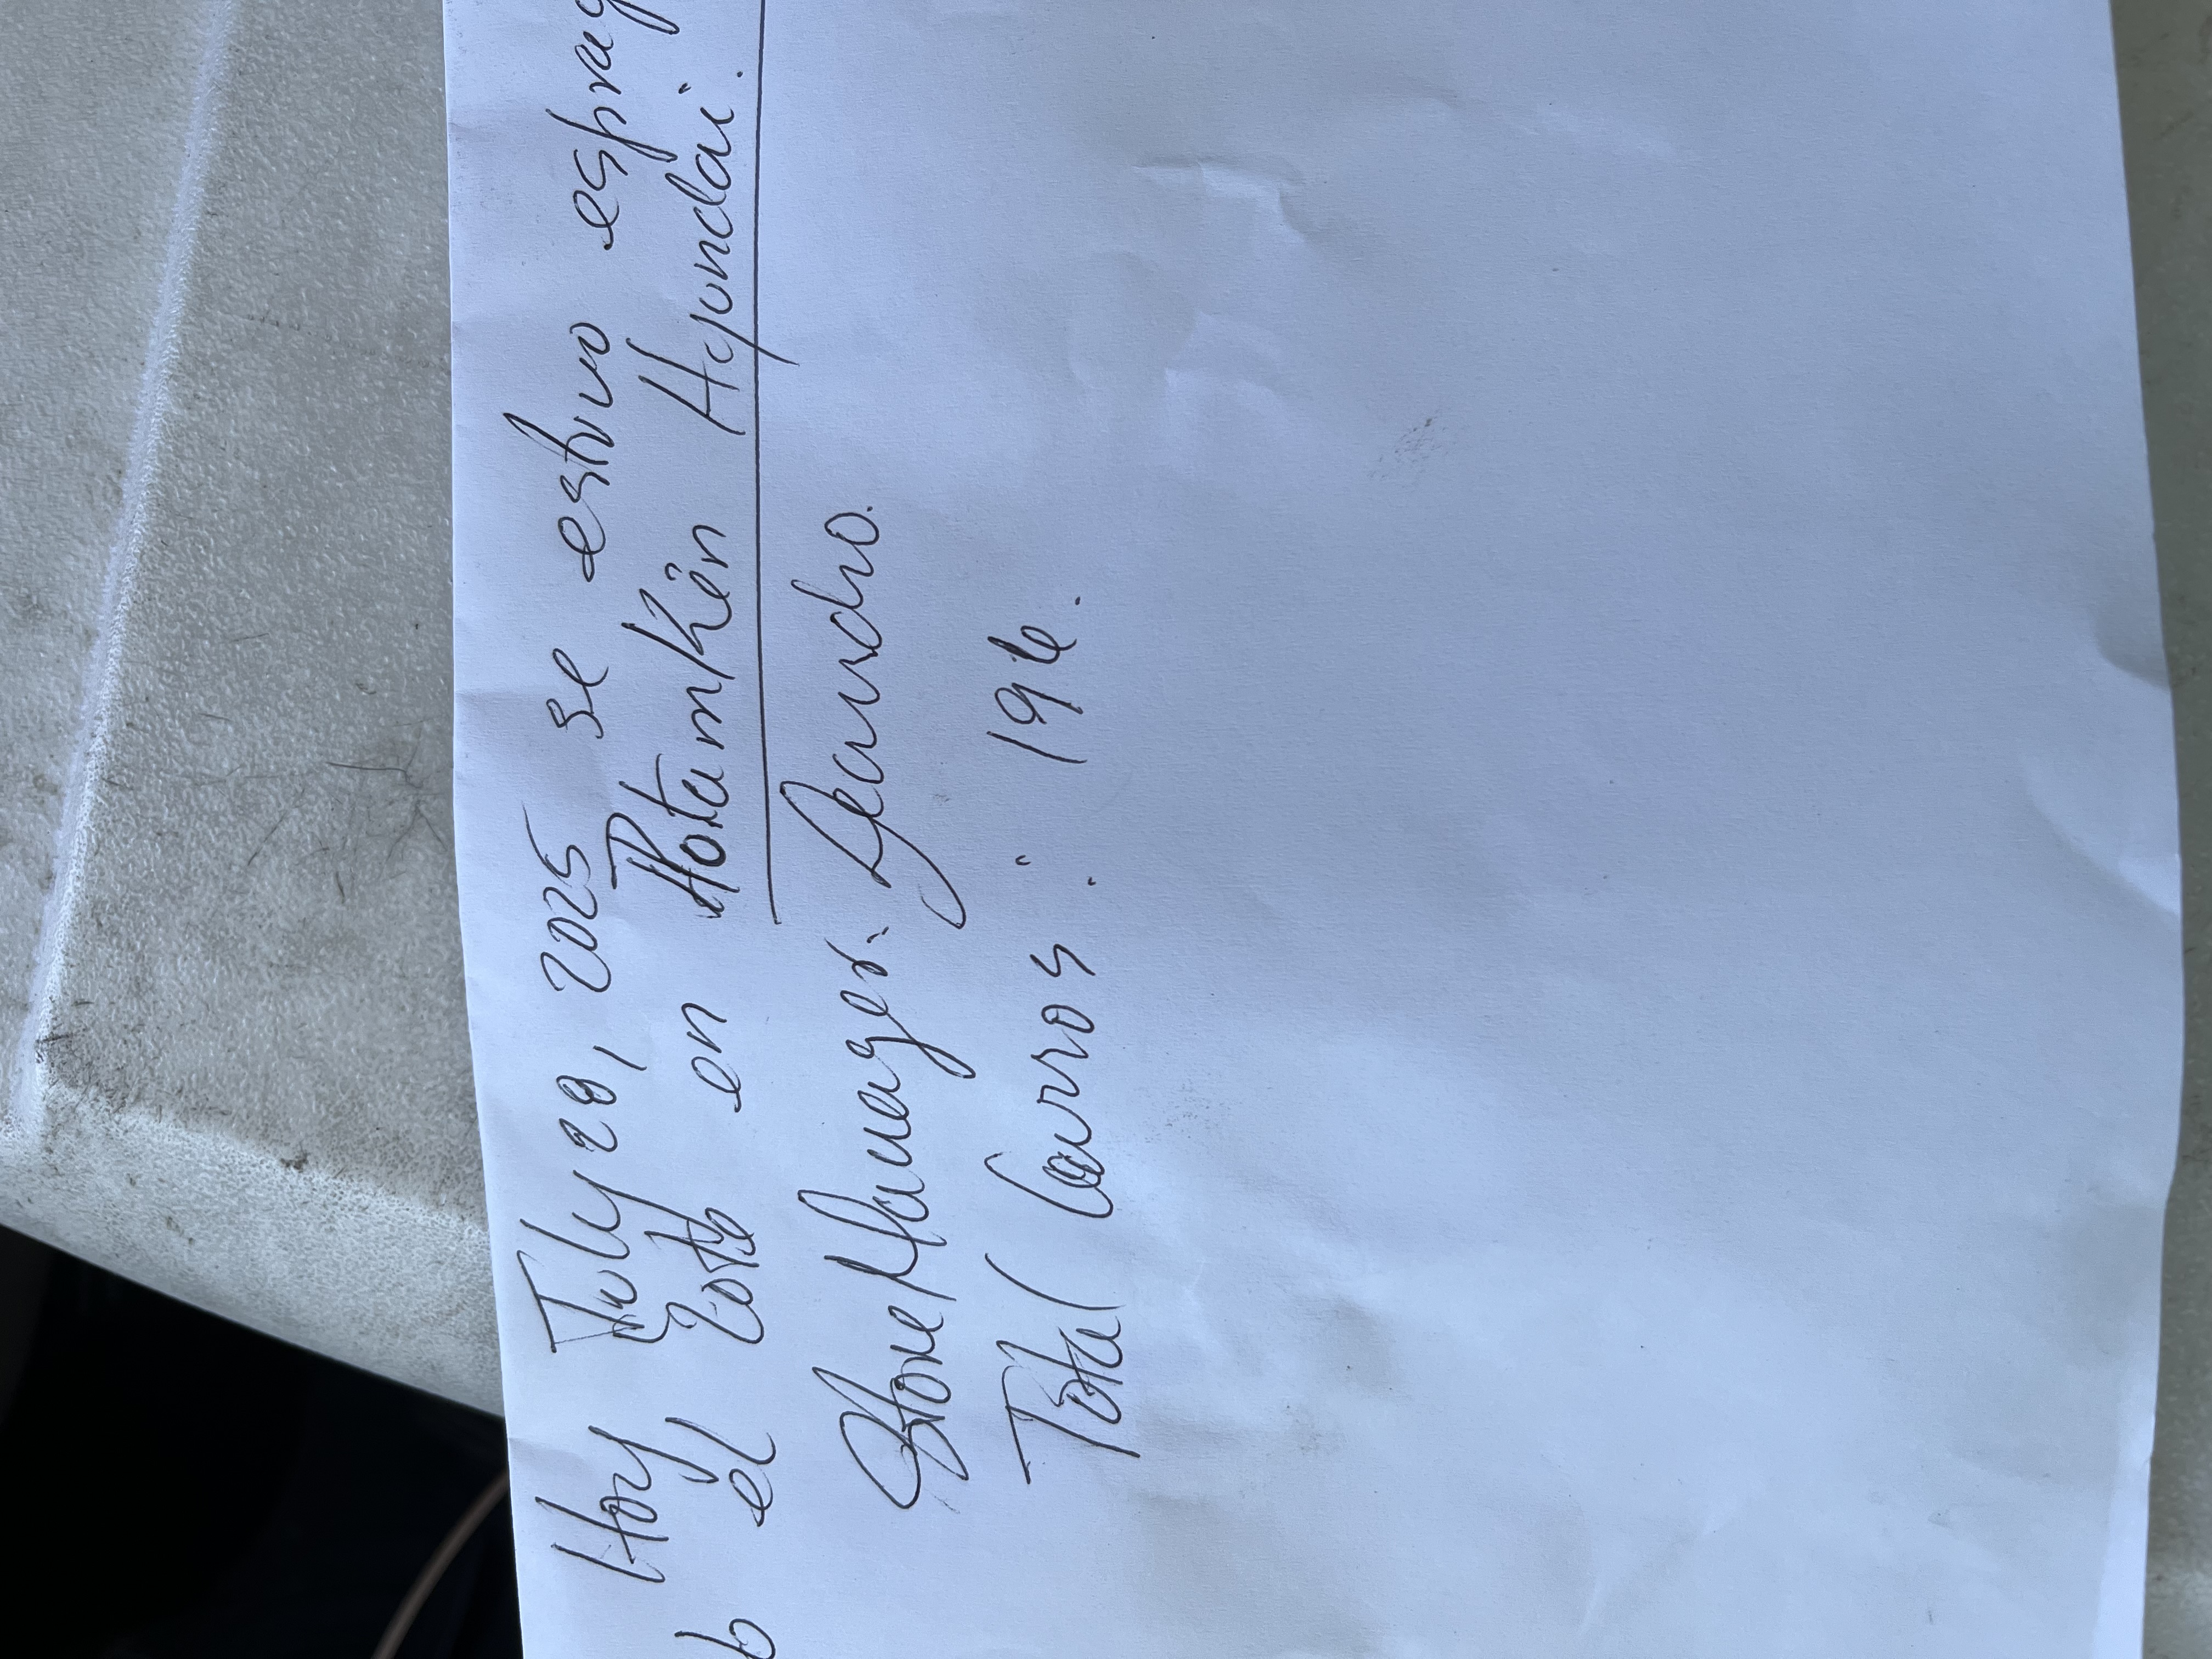 Hoy July 28, 2025 se estuvo espray
el Lote en Potamkin Hyundai.
Store Manager: Leandro.
Total Carros : 196.